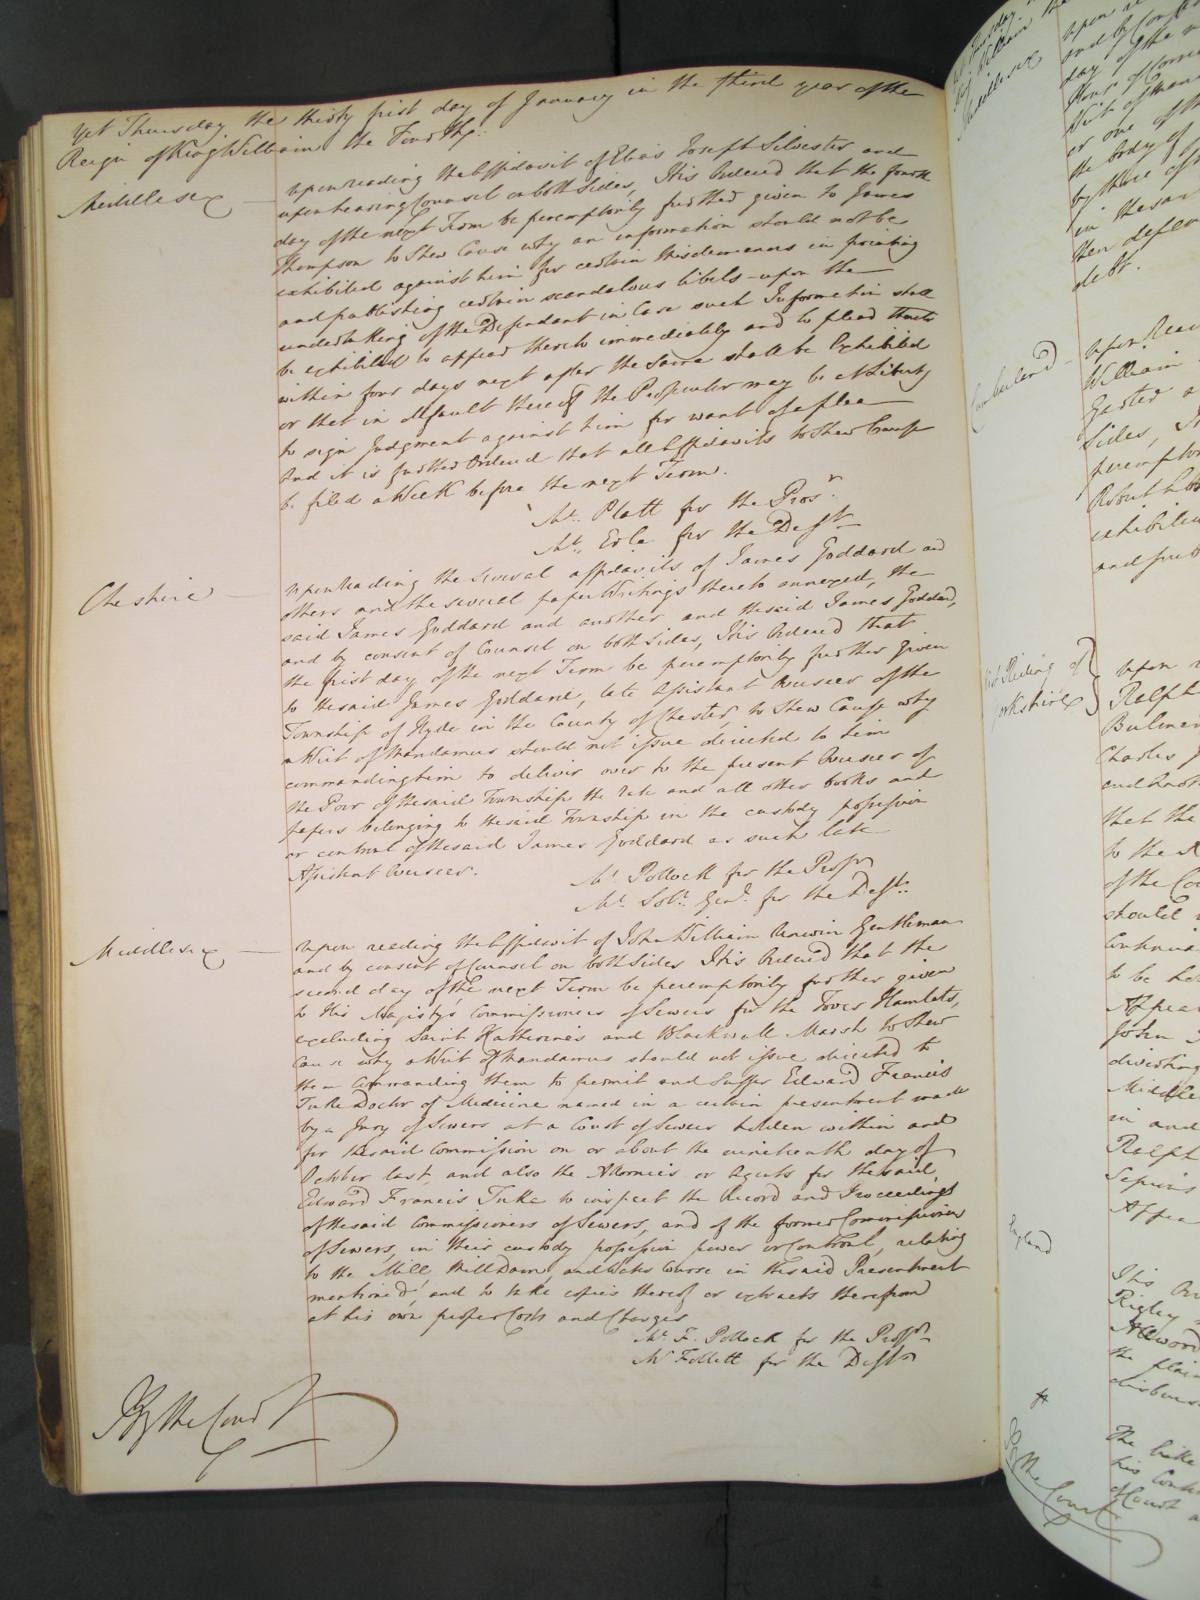 Yet Thursday the thirty first day of January in the third year of the
Reign of King William the Fourth
Middlesex — Upon reading the Affidavit of Elias Joseph Silvester and
upon hearing Counsel on both Sides, It is Ordered that the fourth
day of the next Term be peremptorily further given to James
Thompson to Shew Cause why an information should not be
exhibited against him for certain Misdemeanors in printing
and publishing certain scandalous libels - upon the
undertaking of the Defendant in Case such Information shall
be exhibited to appear thereto immediately and to plead thereto
within four days next after the same shall be Exhibited
or that in default thereof the Prosecutor may be at Liberty
to sign Judgment against him for want of a plea
And it is further Ordered that all Affidavits to Shew Cause
be filed a Week before the next Term.
Mr. Platt for the Prosr.
Mr. Erle for the Deft.
Cheshire — Upon reading the several affidavits of James Goddard and
others and the several paper Writings thereto annexed, the
said James Goddard and another and the said James Goddard,
and by consent of Counsel on both Sides, It is Ordered that
the first day of the next Term be peremptorily further given
to the said James Goddard, late Assistant Overseer of the
Township of Hyde in the County of Chester, to Shew Cause why
a Writ of Mandamus should not issue directed to him
commanding him to deliver over to the present Overseers of
the Poor of the said Township the rate and all other books and
papers belonging to the said Township in the custody possession
or control of the said James Goddard as such late
Assistant Overseer.
Mr. Pollock for the Prosr
Mr. Solr. Genl. for the Deft.
Middlesex — Upon reading the Affidavit of John William Unwin Gentleman
and by consent of Counsel on both Sides It is Ordered that the
second day of the next Term be peremptorily further given
to His Majesty's Commissioners of Sewers for the Tower Hamlets,
excluding Saint Katherines and Blackwall Marsh to Shew
Cause why a Writ of Mandamus should not issue directed to
them Commanding them to permit and suffer Edward Francis
Tuke Doctor of Medicine named in a certain presentment made
by a Jury of Sewers at a Court of Sewers holden within and
for the said Commission on or about the nineteenth day of
October last, and also the Attornies or Agents for the said
Edward Francis Tuke to inspect the Record and Proceedings
of the said Commissioners of Sewers, and of the former Commissioners
of Sewers, in their custody possession power or Control, relating
to the Mill Mill Dam, and Water Course in the said Presentment
mentioned, and to take copies thereof or extracts therefrom
at his own proper Costs and Charges
Mr. F. Pollock for the Prosr
Mr Follett for the Deft
By the Court
Middlesex
Cumberland
Upon Read
William
Sides, It
peremptor
exhibited
and furth
Riding of
Yorkshire
Upon r
Ralph
Bulmer
Charles
and anoth
that the
to the
of the Cou
should
Continu
to be he
Appea
John
Middle
in and
Ralph
Appea
England
It is Or
Rigby
the plain
disburse
The like
his Cont
of Court a
By the Court